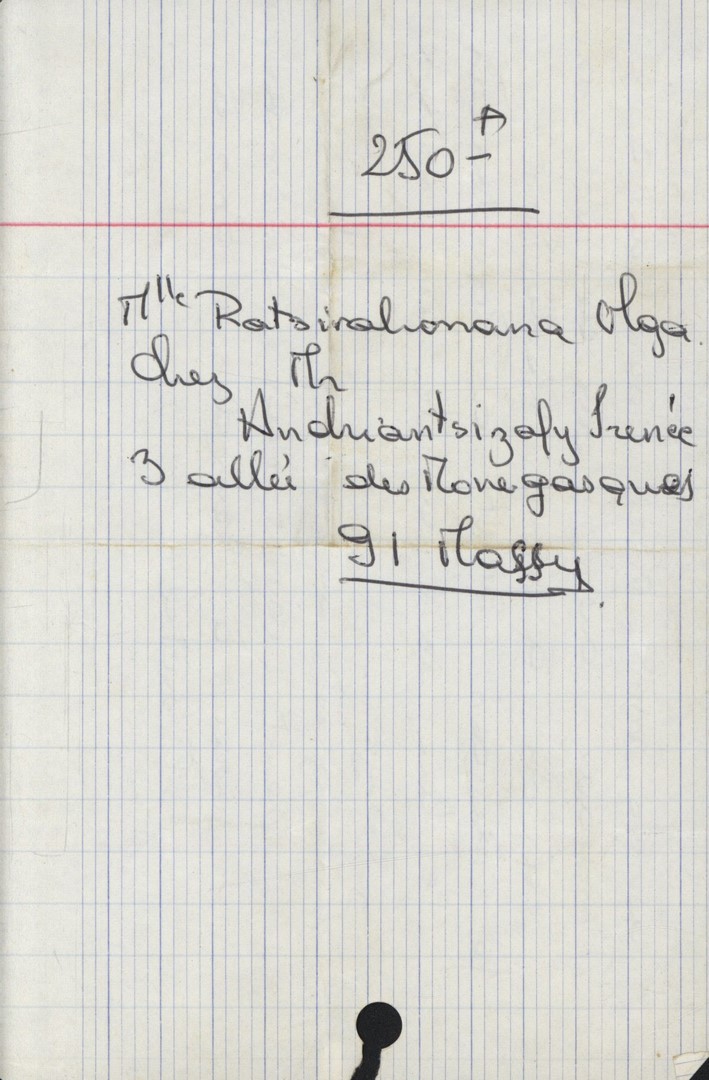 250 -F
Mlle Ratsirahonana Olga.
Chez Mr
Andriantsizafy Irenée
3 allée des Monegasques
91 Massy.